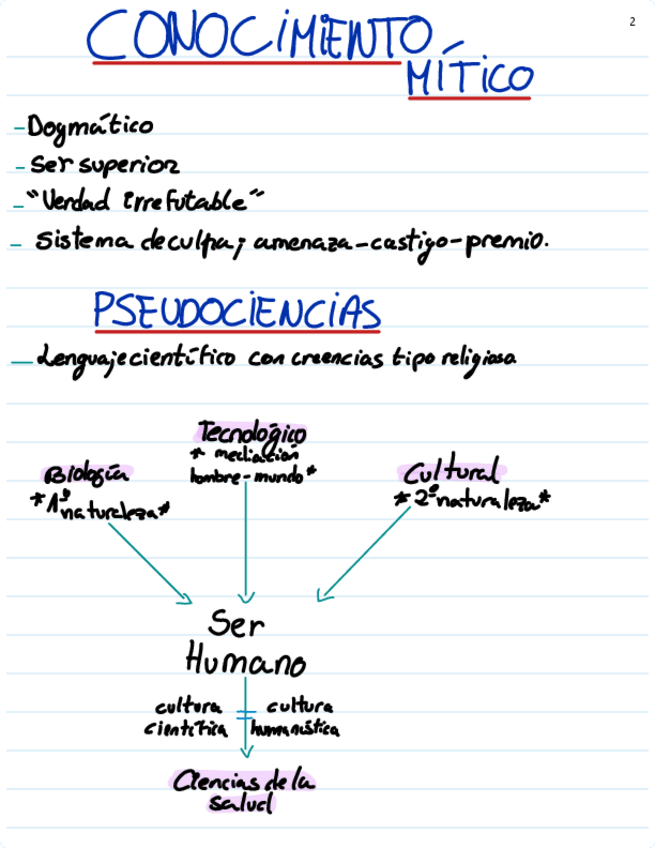 2
CONOCIMIENTO
MÍTICO
- Dogmático
- Ser superior
- "Verdad irrefutable"
- Sistema de culpa; amenaza-castigo-premio.
PSEUDOCIENCIAS
- Lenguaje científico con creencias tipo religiosa
Tecnológico
* mediación
hombre-mundo*
Biología
*1º naturaleza*
Cultural
* 2º naturaleza*
Ser
Humano
cultura científica = cultura humanística
Ciencias de la
salud